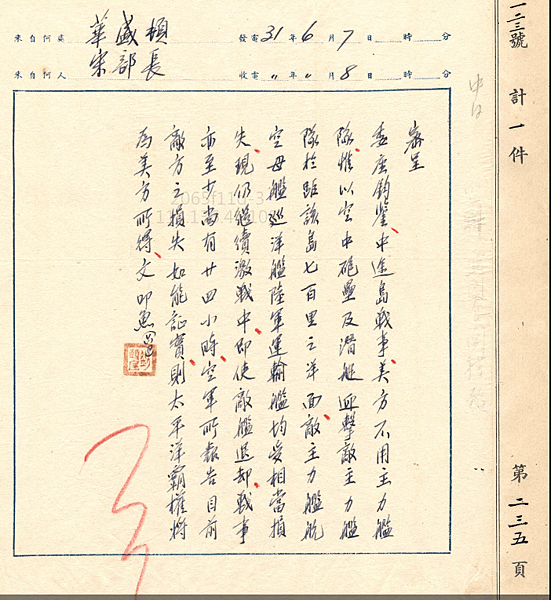 來自何處 華盛頓 發電31年6月7日 時 分
來自何人 宋部長 收電〃年〃月8日 時 分
密呈
委座鈞鑒中途島戰事美方不用主力艦
隊惟以空中砲壘及潛艇迎擊敵主力艦
隊於距該島七百里之洋面敵主力艦航
空母艦巡洋艦陸軍運輸艦均受相當損
失現仍繼續激戰中即使敵艦退却戰事
亦至少尚有廿四小時空軍所報告目前
敵方之損失如能証實則太平洋霸權將
為美方所得文叩魚
一二三號
計一件
第二三五頁